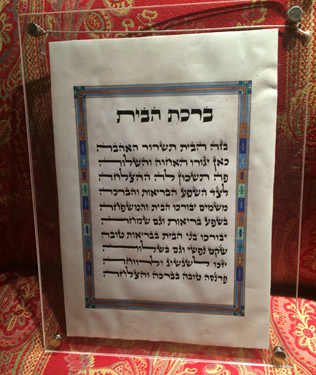 ברכת הבית
בזה הבית תשרור האהבה
כאן יגורו האחוה והשלום
פה תשכון לה ההצלחה
לצד השפע הבריאות והברכה
משמים יבורכו הבית והמשפחה
בשפע בריאות וגם שמחה
יבורכו בני הבית בבריאות טובה
שקט נפשי וגם בשלוה
יזכו לשגשוג ולרווחה
פרנסה טובה בברכה והצלחה